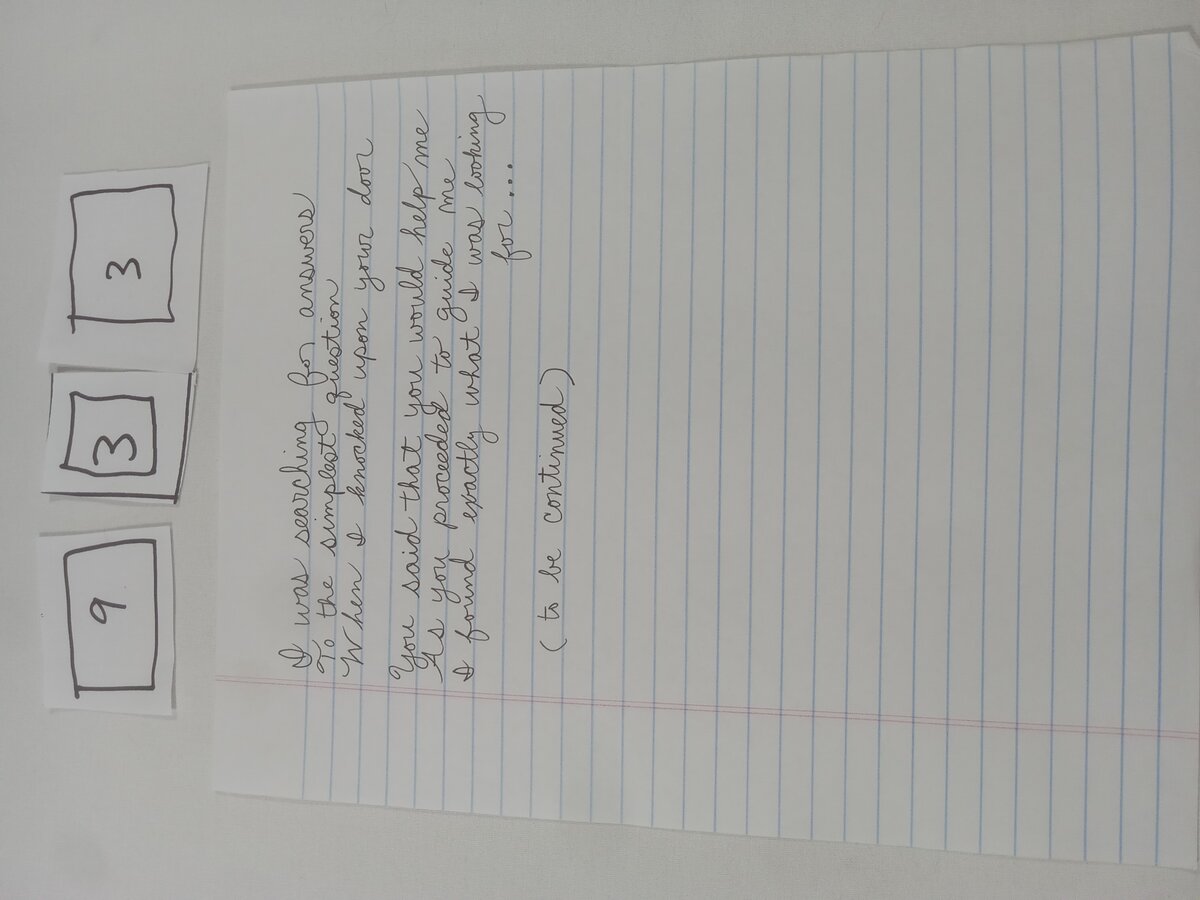 9 3 3
I was searching for answers
To the simplest question
When I knocked upon your door
You said that you would help me
As you proceeded to guide me
I found exactly what I was looking
for...
(to be continued)